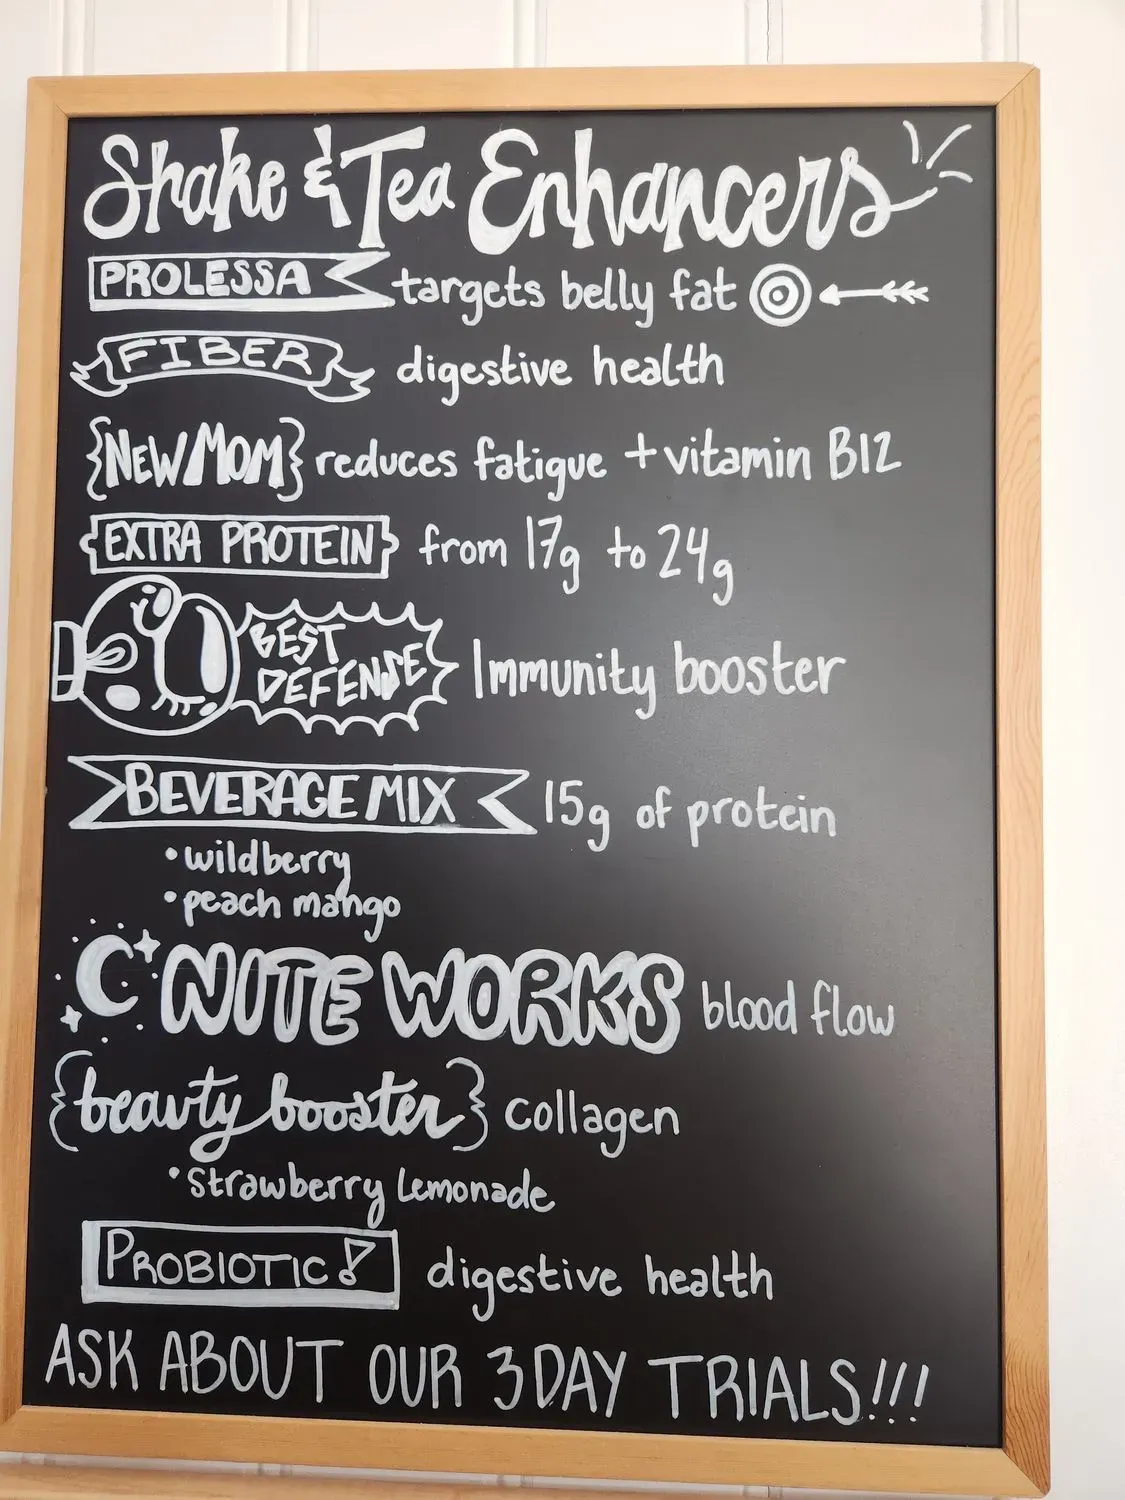 Shake & Tea Enhancers
PROLESSA targets belly fat
FIBER digestive health
{NEW MOM} reduces fatigue + vitamin B12
{EXTRA PROTEIN} from 17g to 24g
BEST DEFENSE Immunity booster
BEVERAGE MIX 15g of protein
• wildberry
• peach mango
NITE WORKS blood flow
{beauty booster} collagen
• Strawberry Lemonade
PROBIOTIC! digestive health
ASK ABOUT OUR 3 DAY TRIALS!!!